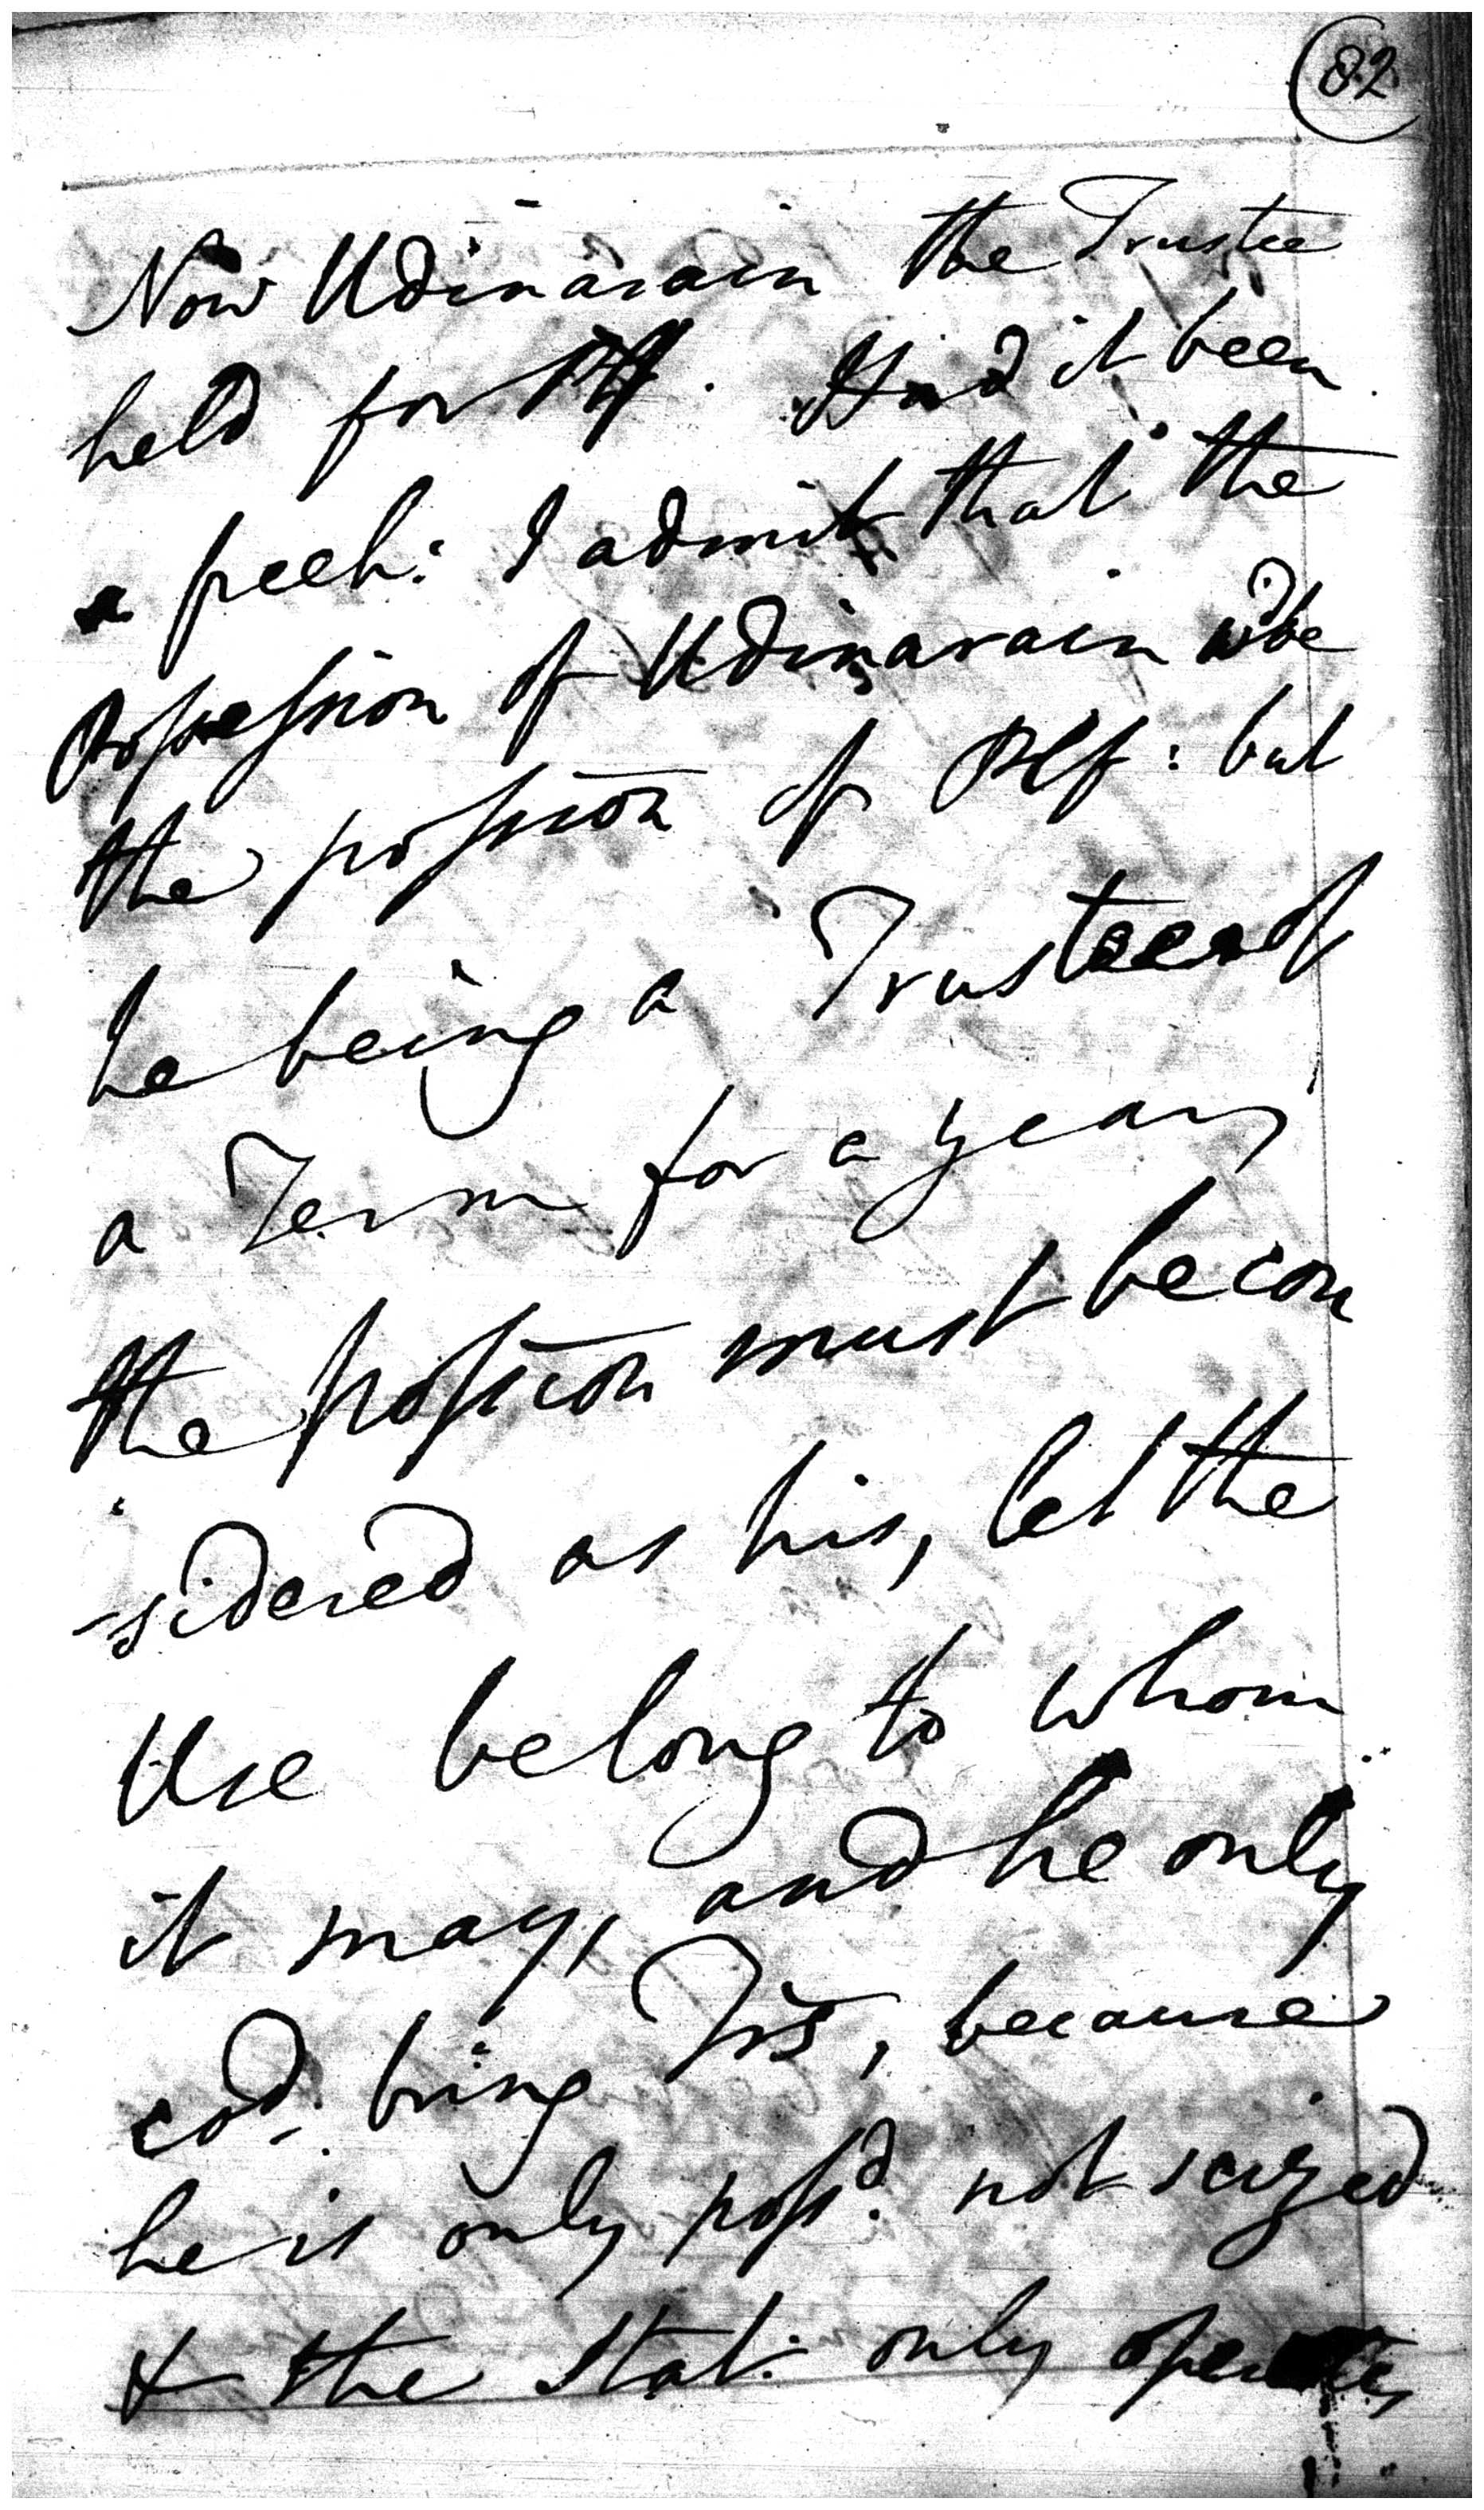 82
Now Udinarain the Trustee
held for Plf. Had it been
a freeh: I admit that the
Possession of Udinarain wd. be
the possion of Plf: but
he being a Trustee of
a Term for a year,
the possion must be con
-sidered as his, let the
Use belong to whom
it may, and he only
cod. bring Trs, because
he is only possd. not seized
& the Stat: only operates